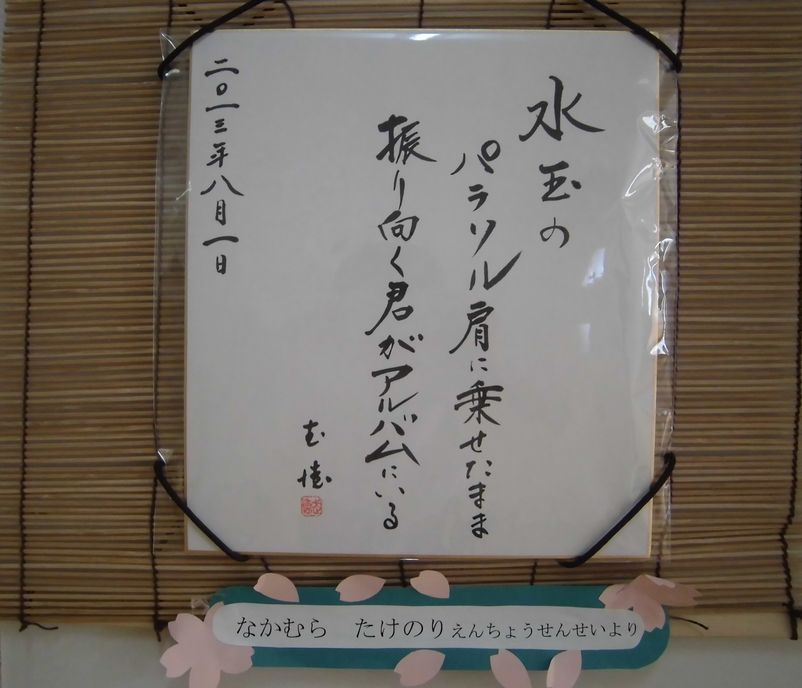 水玉の
パラソル肩に乗せたまま
振り向く君がアルバムにいる
二〇一三年八月一日
なかむら　たけのりえんちょうせんせいより